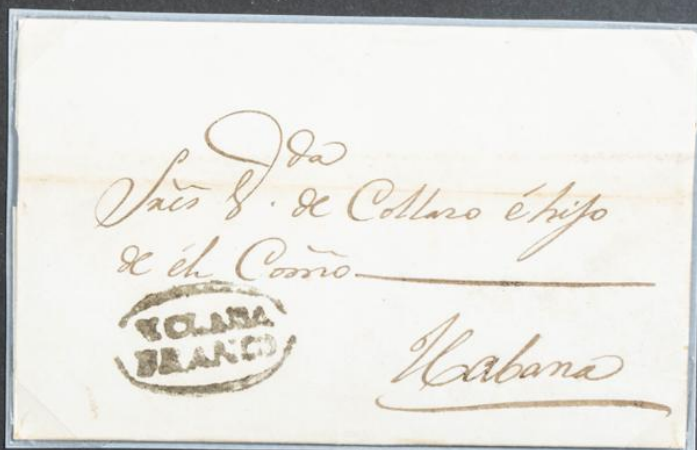 da
Sres V. de Collaso é hijo
de el Comño
YOLANA
BRANCO
Habana